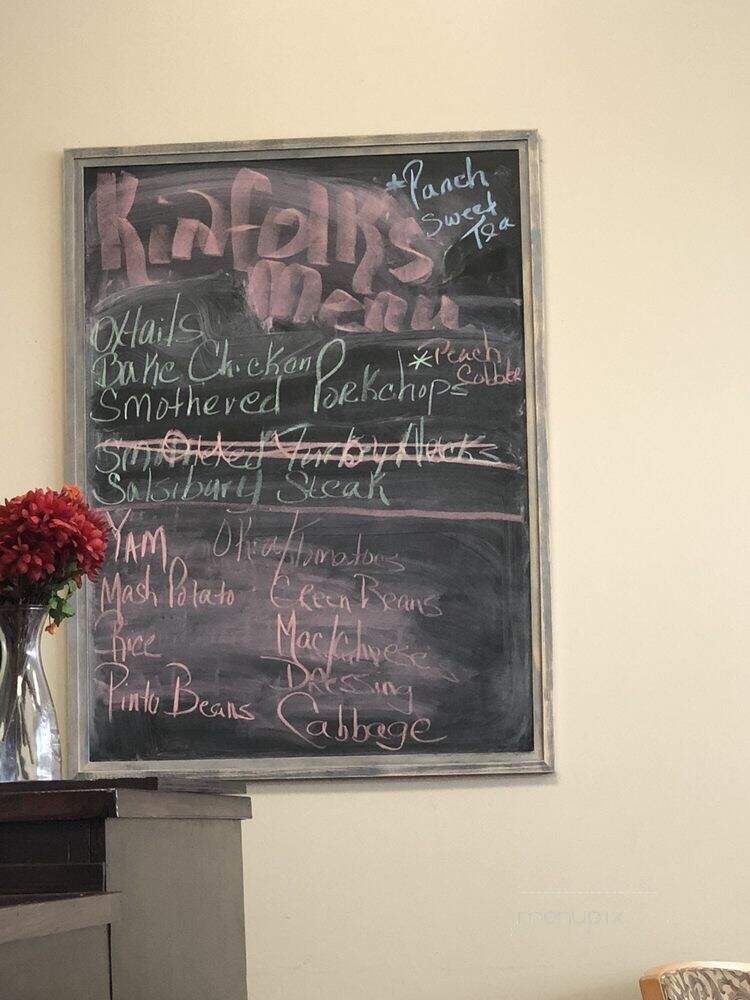 Kinfolk's
Menu
*Panch
Sweet
Tea
Oxtails
Bake Chicken
Smothered Porkchops
*Peach
Cobbler
Smokked Turkey Necks
Salsibury Steak
YAM
Okra/Tomatoes
Mash Potato
Green Beans
Rice
Mac/Cheese
Dressing
Pinto Beans
Cabbage
menupix